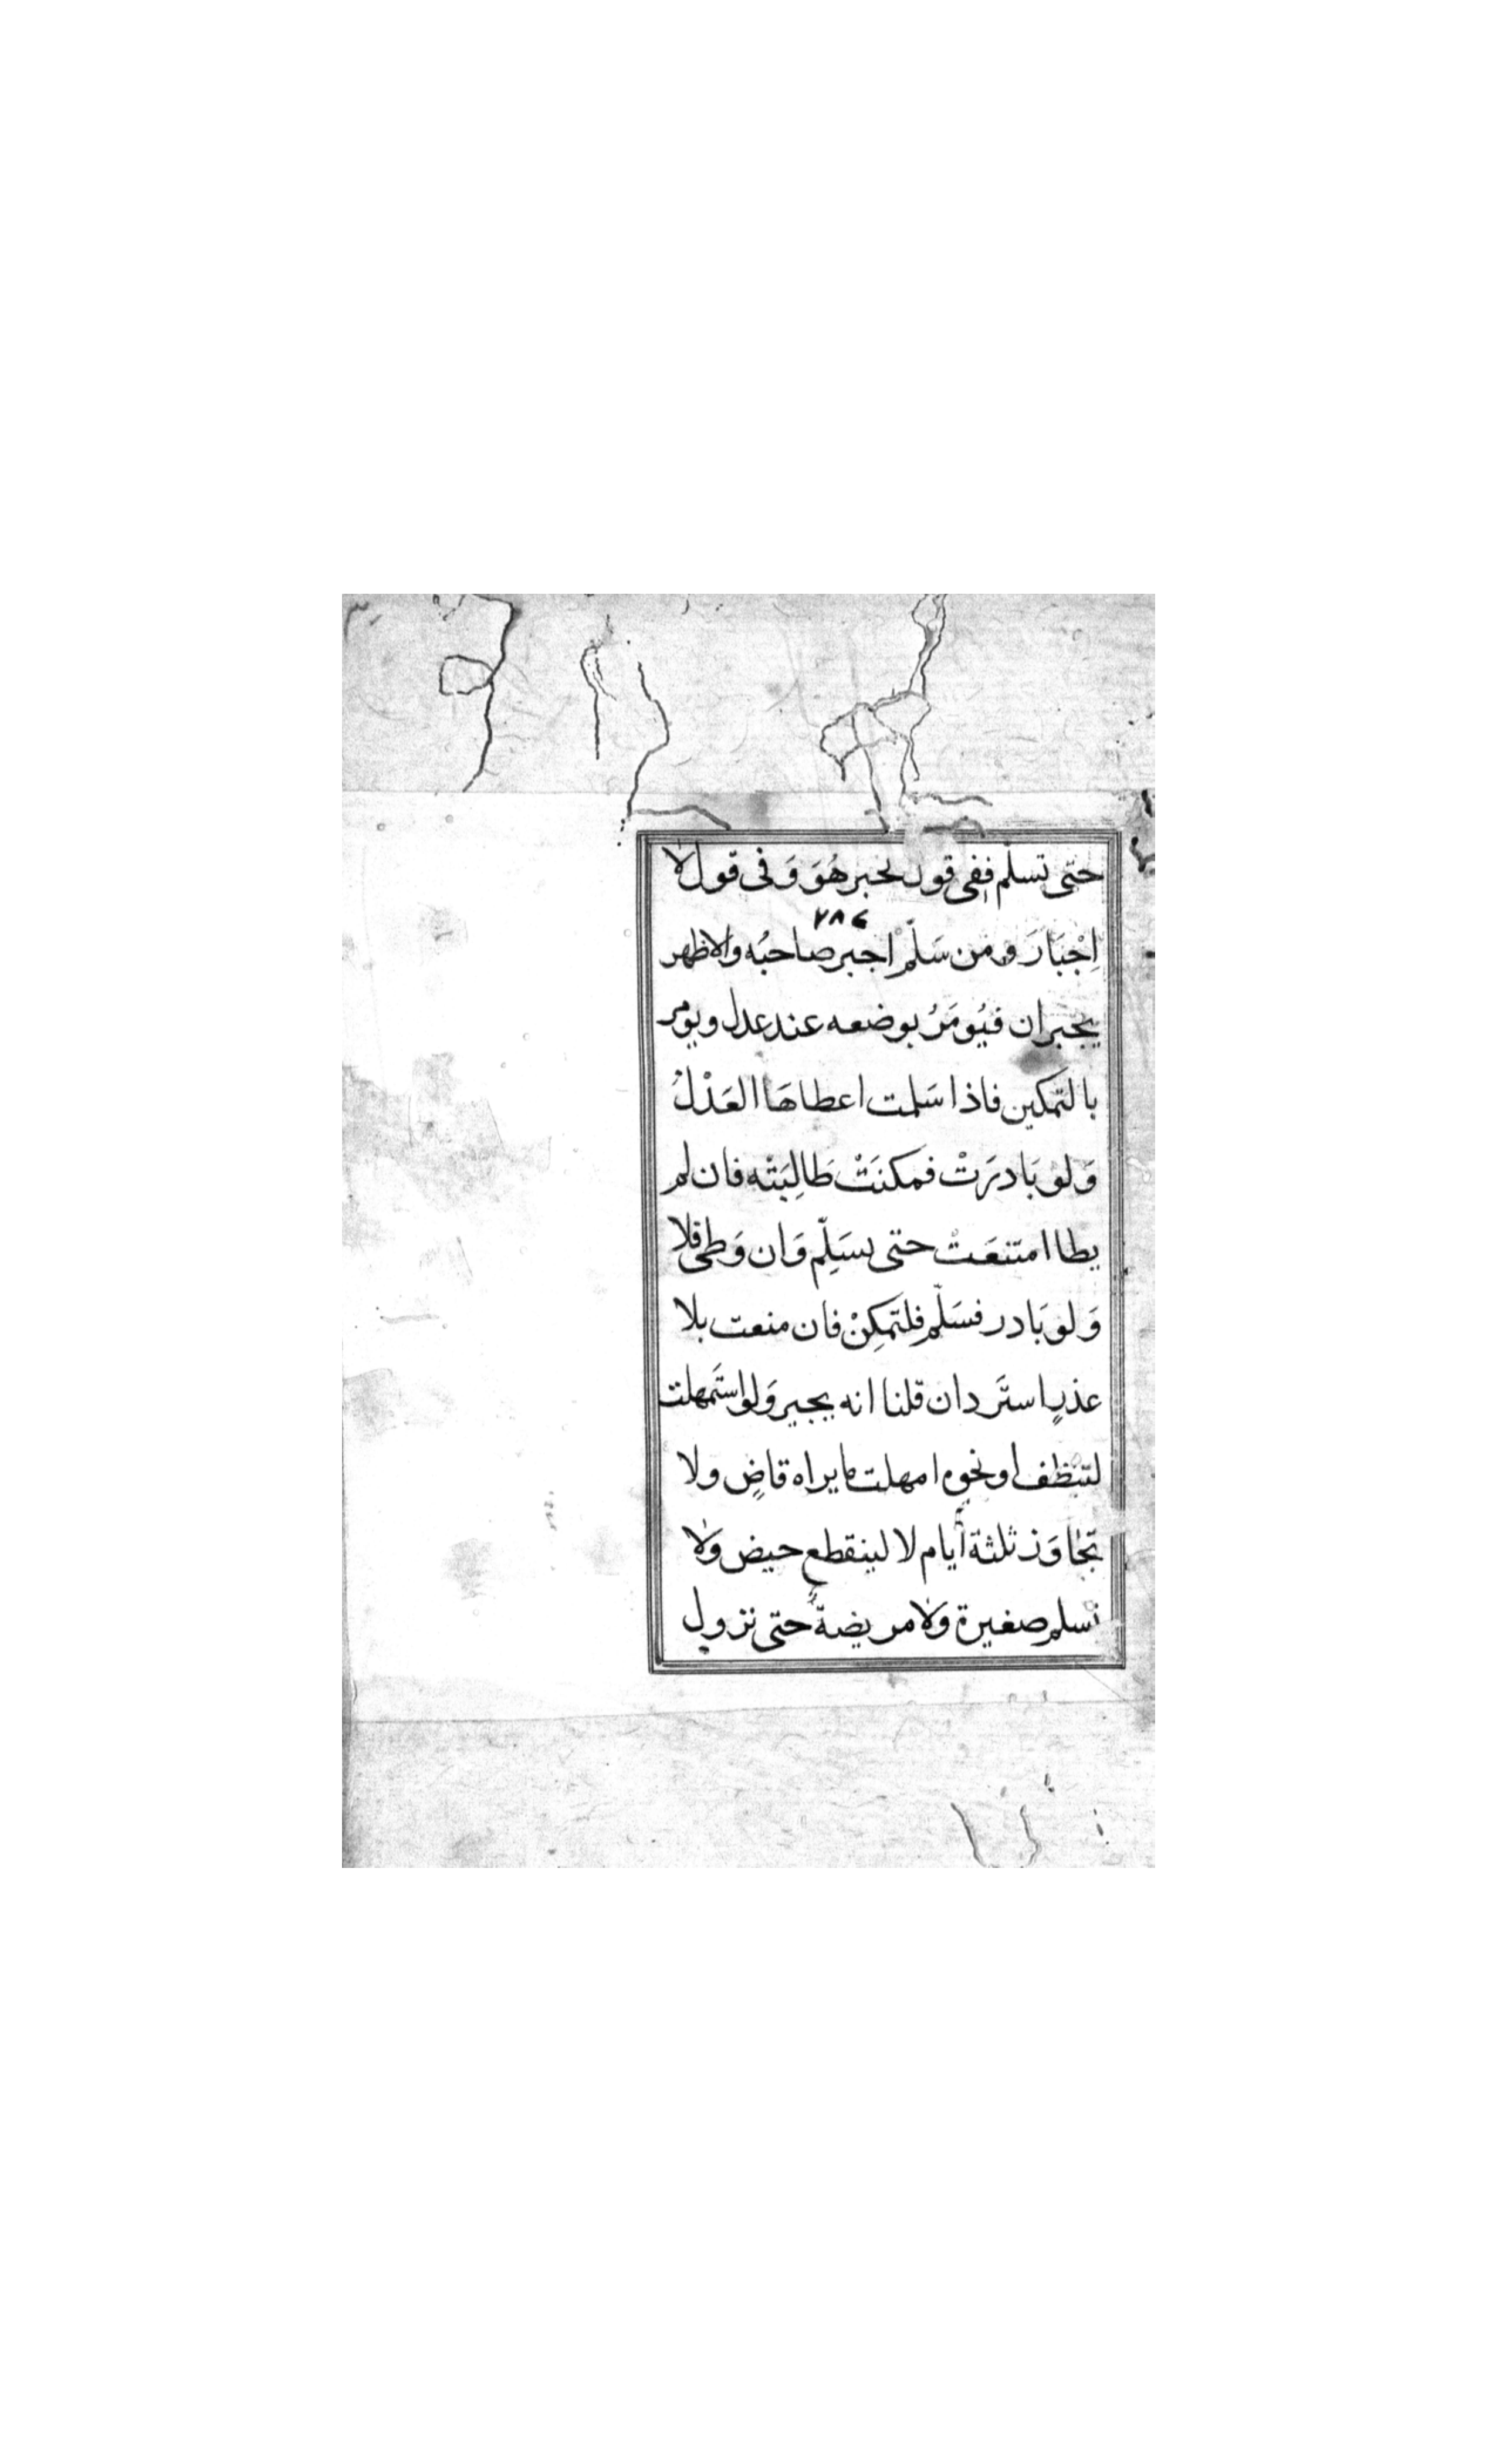 حتى تسلّم ففى قول يجبر هُوَ وَفى قول لا
٢٨٤
اِجْبَارَ ومن سَلّمْ اجبر صاحبُه والاظهر
يجبران فيُومَرُ بوضعه عند عدل ويومر
بالتّمكين فاذا سَلمت اعطاهَا العَدْلُ
وَلو بَادرَتْ فمكنَتْ طَالِبَتْه فان لم
يطا امتنعَتْ حتى يسَلِّم وَان وَطى فلا
وَلو بَادر فسَلّم فلتمكِنْ فان منعت بلا
عذرٍ استَرد ان قلنا انه يجبر وَلو استَمهلت
لتنظف او نحوه امهلت ما يراه قاضٍ ولا
تجَاوَز ثلثة أيام لا لينقطع حيض وَلا
تسلم صغيرة وَلا مريضة حتى تزول